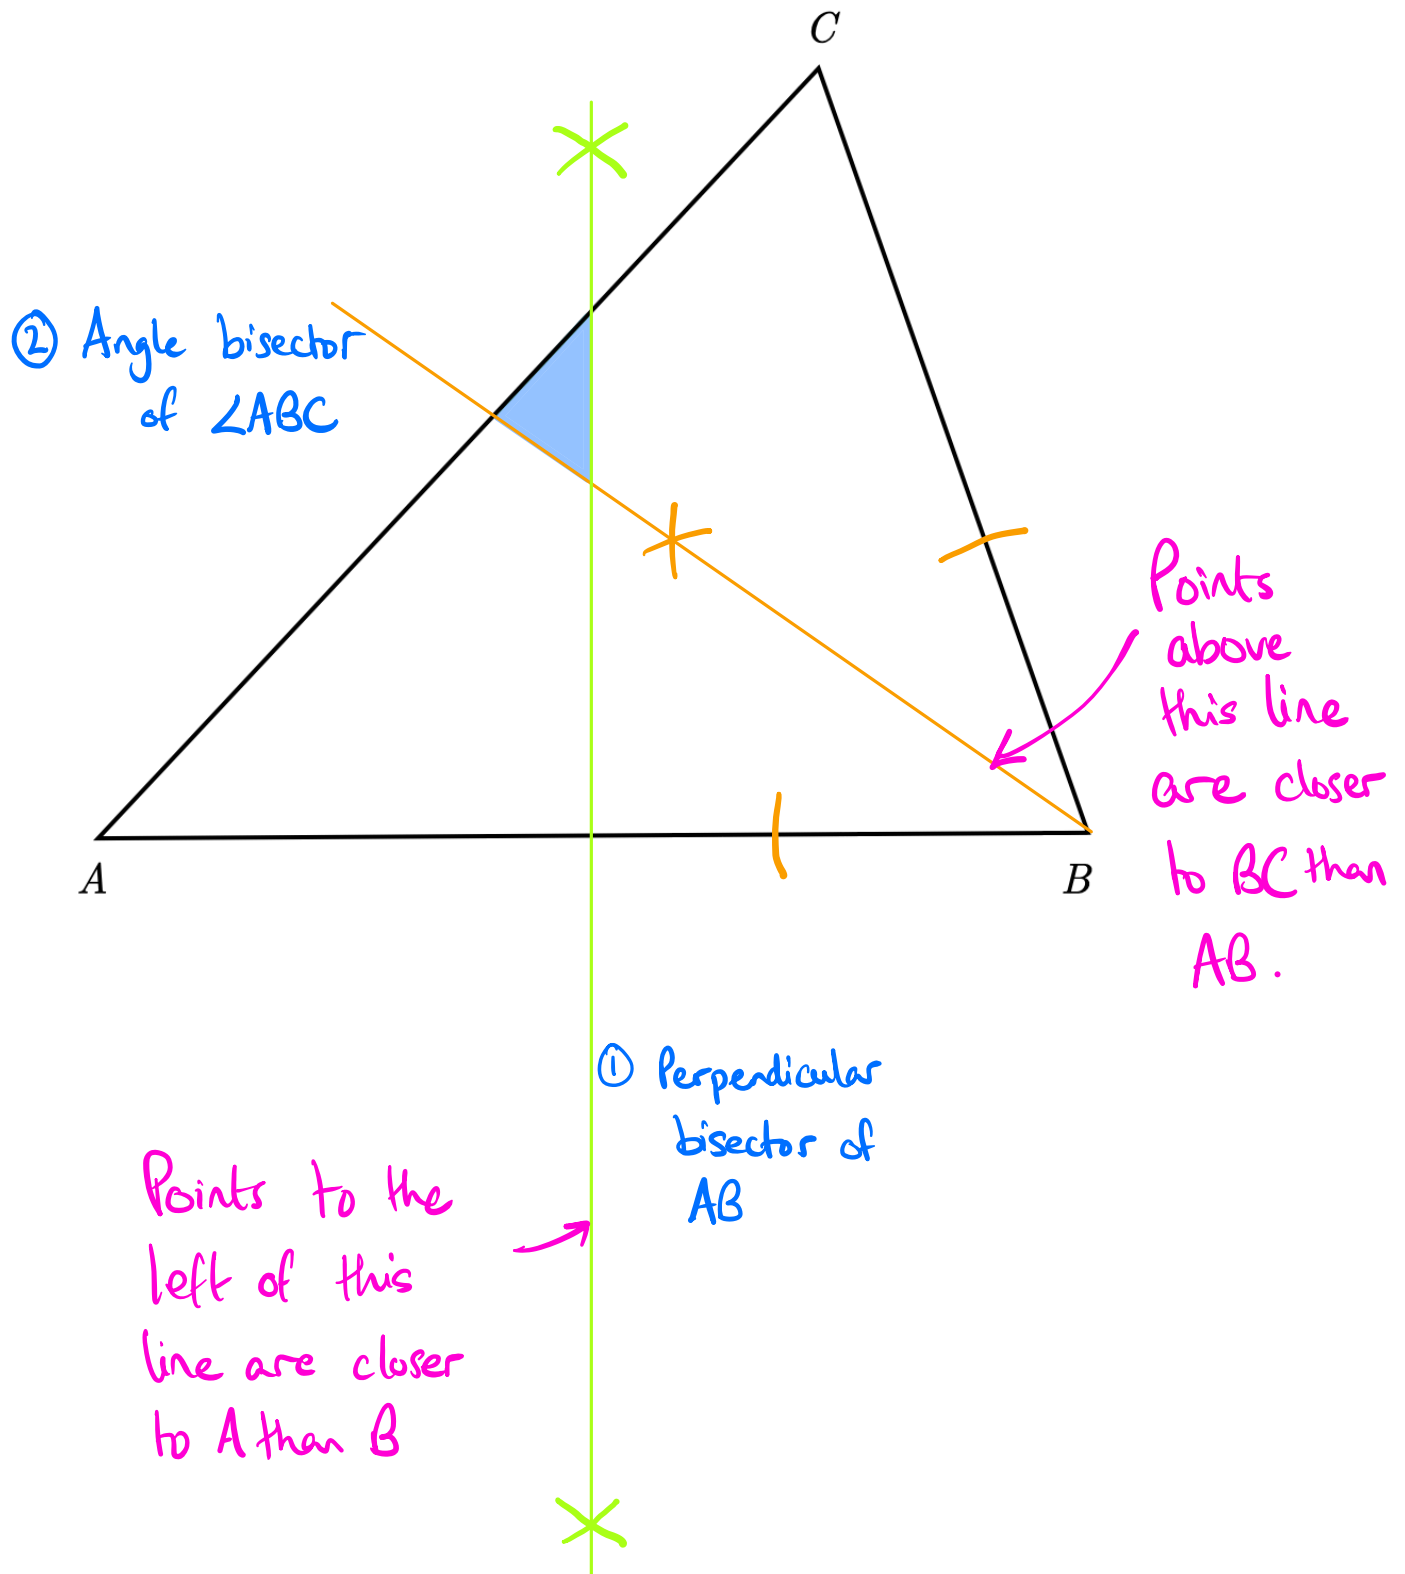 C
② Angle bisector
of ∠ABC
Points
above
this line
are closer
to BC than
AB.
A
B
① Perpendicular
bisector of
AB
Points to the
left of this
line are closer
to A than B